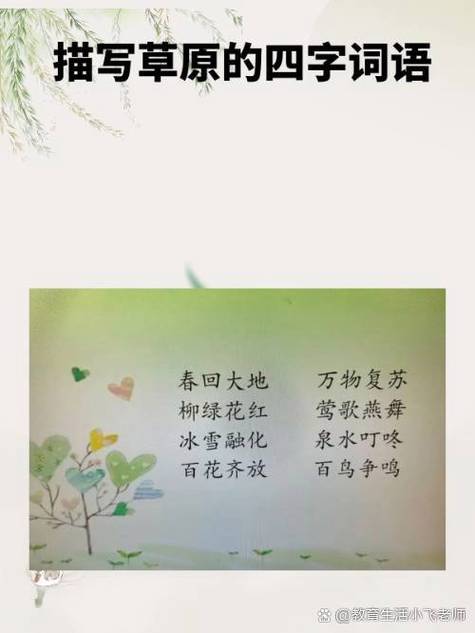 描写草原的四字词语
春回大地 万物复苏
柳绿花红 莺歌燕舞
冰雪融化 泉水叮咚
百花齐放 百鸟争鸣
@教育生活小飞老师